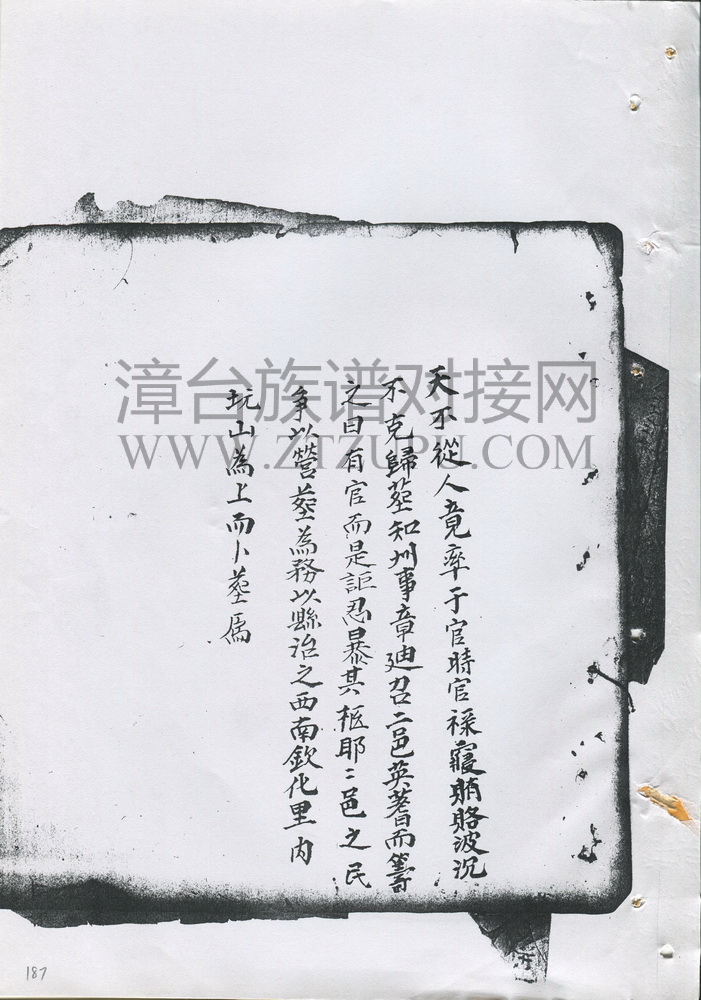 天不從人竟率于官時官祿寢賄賂波沉
不克歸塟知州事章廸召二邑英耆而籌
之曰有官而是詎忍暴其柩耶二邑之民
争以營塟為務以縣治之西南欽化里内
坑山為上而卜塟焉
漳台族谱对接网
WWW.ZTZUPU.COM
187